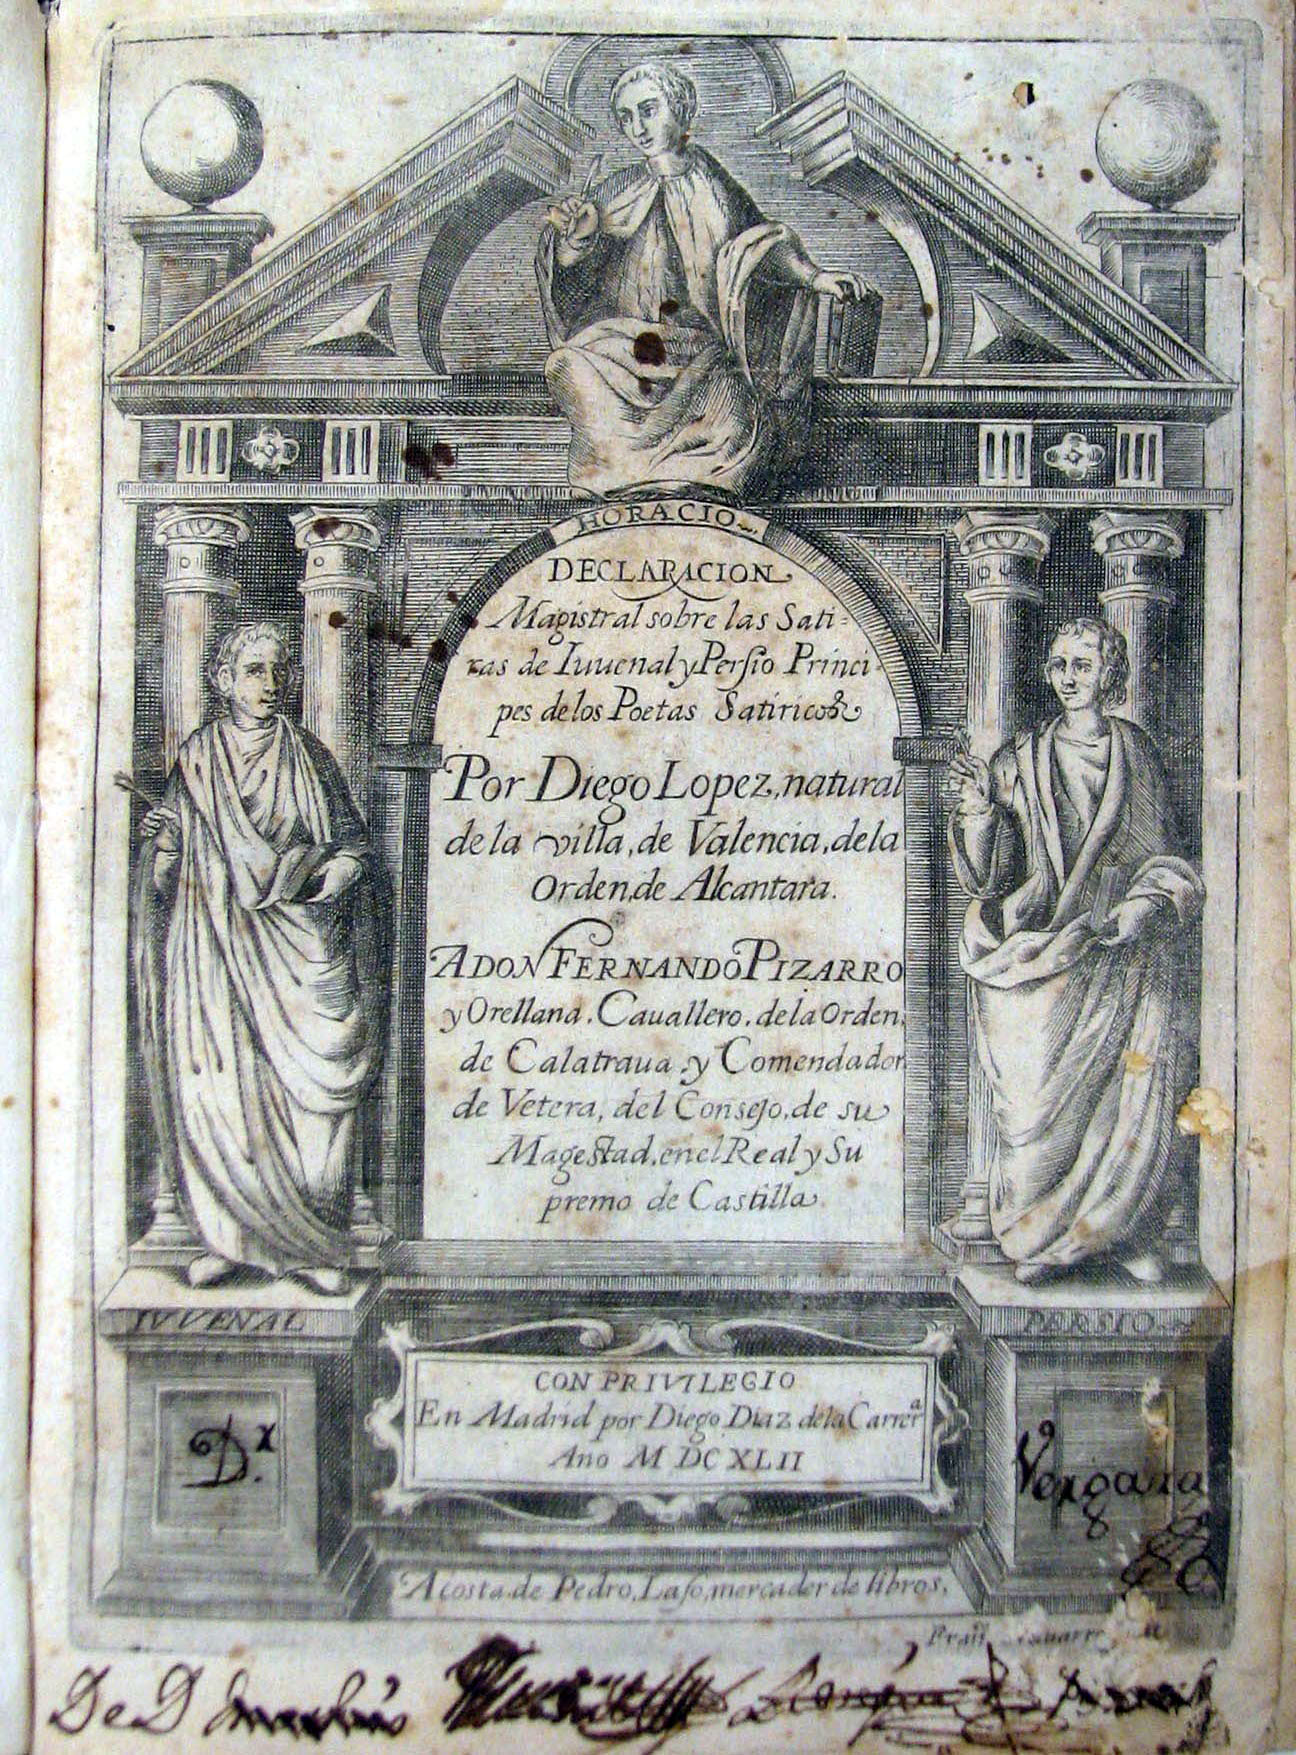 HORACIO
DECLARACION
Magistral sobre las Sati=
ras de Iuuenal y Persio Princi=
pes de los Poetas Satiricos
Por Diego Lopez, natural
de la villa, de Valencia, de la
Orden, de Alcantara.
A DON FERNANDO PIZARRO
y Orellana. Cauallero, de la Orden,
de Calatraua, y Comendador
de Vetera, del Consejo, de su
Magestad, en el Real y Su
premo de Castilla
IVVENAL
PERSIO
CON PRIVILEGIO
En Madrid por Diego Diaz de la Carrerª
Año M DC XLII
D.r
Vergara
Acosta de Pedro, Laso, mercader de libros.
Fran
De D